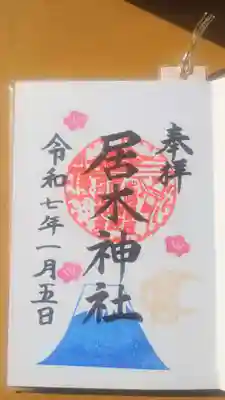 奉拝
居木神社
令和七年一月五日